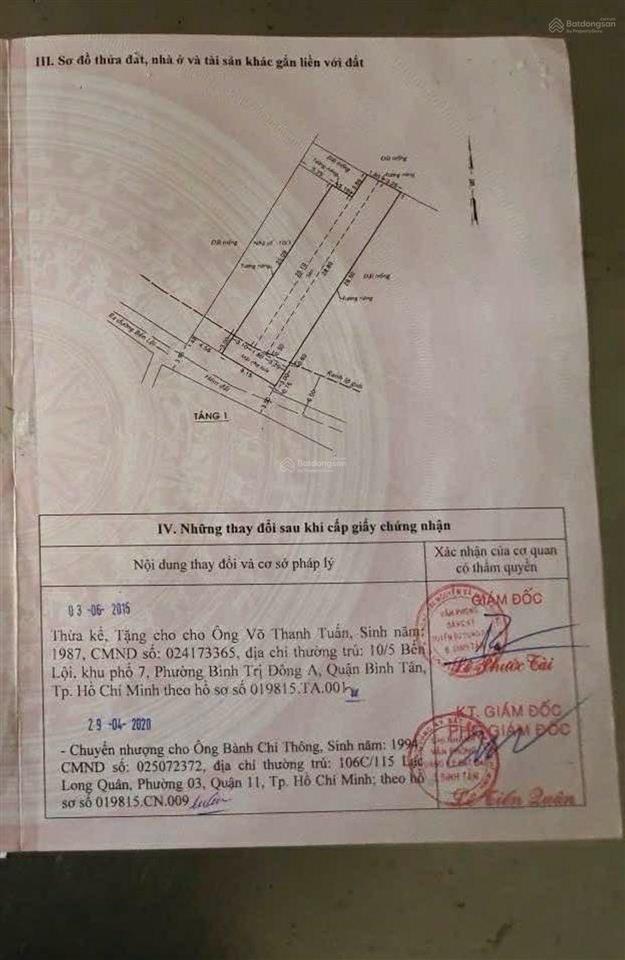 Batdongsan
by PropertyGuru
III. Sơ đồ thửa đất, nhà ở và tài sản khác gắn liền với đất
Đất trống
Đất trống
Tường riêng
Tường riêng
Đất trống
Nhà số
Tường riêng
Đất trống
Tường riêng
28.50
Ra đường Bến Lội
Ranh lộ giới
Hẻm đất
TẦNG 1
Batdongsan
by PropertyGuru
IV. Những thay đổi sau khi cấp giấy chứng nhận
Nội dung thay đổi và cơ sở pháp lý
Xác nhận của cơ quan
có thẩm quyền
03-06-2015
GIÁM ĐỐC
Thừa kế, Tặng cho cho Ông Võ Thanh Tuấn, Sinh năm:
1987, CMND số: 024173365, địa chỉ thường trú: 10/5 Bến
Lội, khu phố 7, Phường Bình Trị Đông A, Quận Bình Tân,
Tp. Hồ Chí Minh theo hồ sơ số 019815.TA.001
Lê Phước Tài
29-04-2020
KT. GIÁM ĐỐC
PHÓ GIÁM ĐỐC
- Chuyển nhượng cho Ông Bành Chí Thông, Sinh năm: 1994,
CMND số: 025072372, địa chỉ thường trú: 106C/115 Lạc
Long Quân, Phường 03, Quận 11, Tp. Hồ Chí Minh; theo hồ
sơ số 019815.CN.009
Lê Tiến Quân